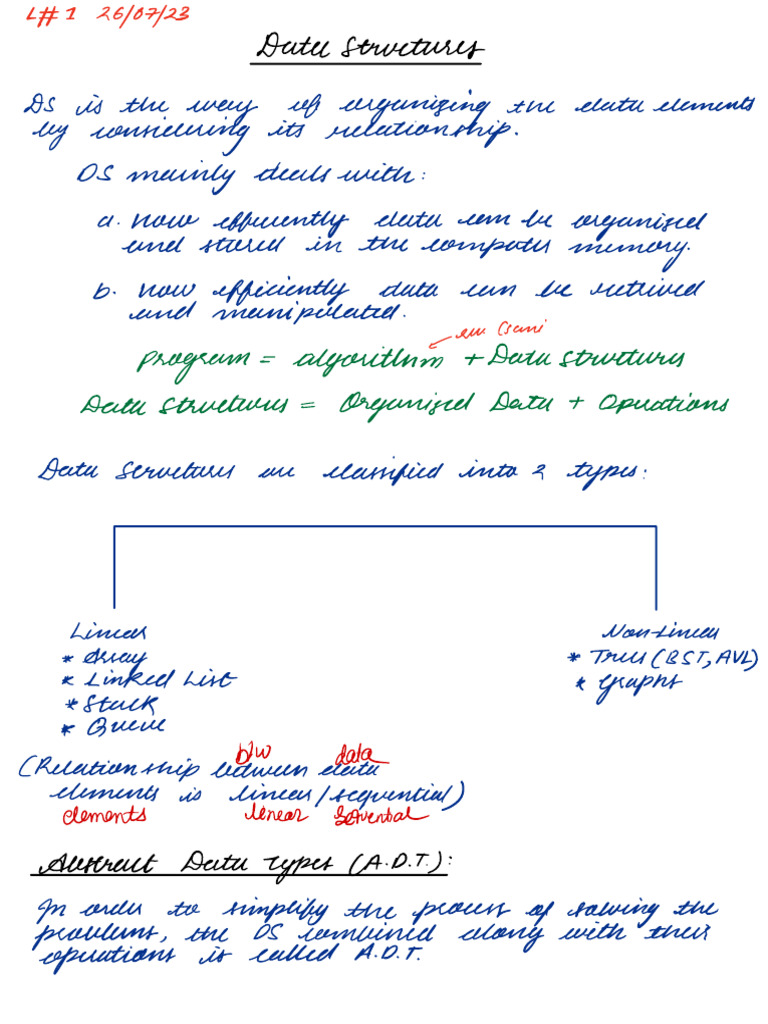 L# 1 26/07/23
Data Structures
DS is the way of organizing the data elements
by considering its relationship.
DS mainly deals with:
a. How efficiently data can be organized
and stored in the computer memory.
b. How efficiently data can be retrived
and manipulated.
Program = algorithm + Data Structures
Data Structures = Organized Data + Operations
Data Structures are classified into 2 types:
Linear
* Array
* Linked List
* Stack
* Queue
Non-Linear
* Trees (BST, AVL)
* Graphs
b/w data
(Relationship between data
elements is linear/sequential)
elements linear
Abstract Data Types (A.D.T.):
In order to simplify the process of solving the
problems, the DS combined along with their
operations is called A.D.T.